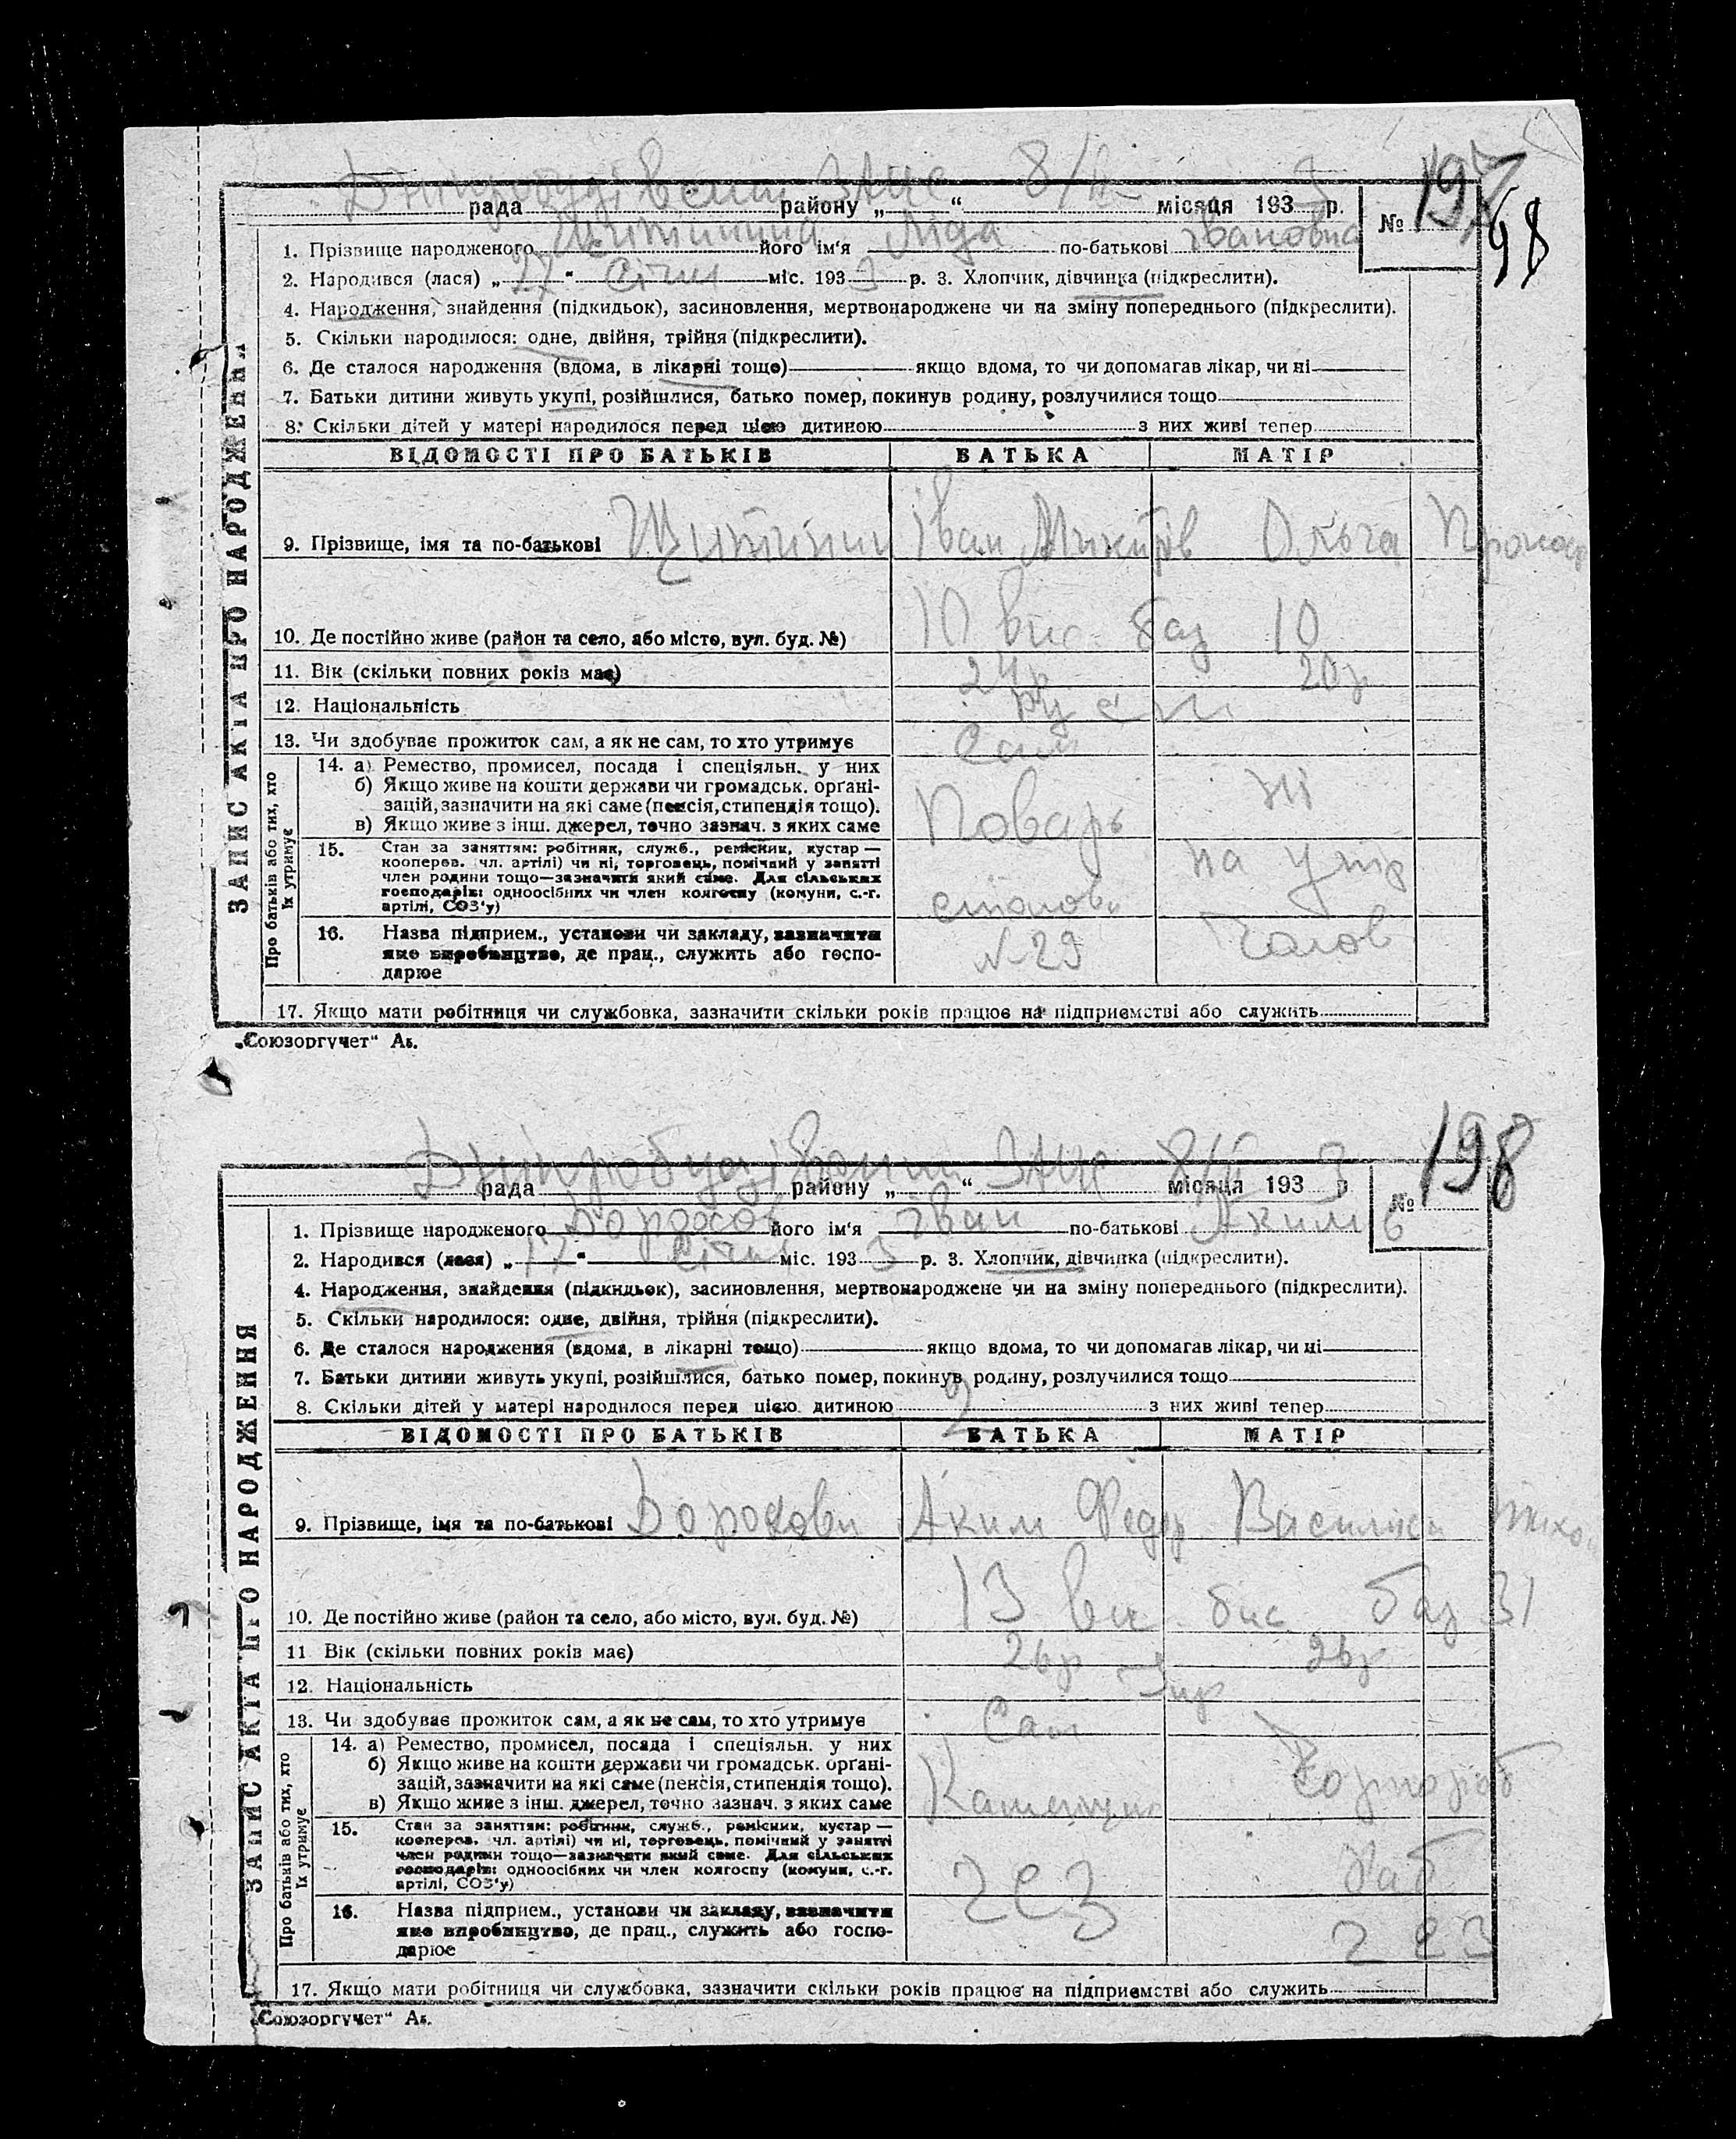 Дніпробудівськи ЗАГС 8/II 3 197
98
рада района „ “ місяця 193 р. №
1. Прізвище народженого його ім‘я Ліда по-батькові Івановна
2. Народився (лася) „27“ Січня міс. 1933 р. 3. Хлопчик, дівчинка (підкреслити).
4. Народження, знайдення (підкидьок), засиновлення, мертвонароджене чи на зміну попереднього (підкреслити).
5. Скільки народилося: одне, двійня, трійня (підкреслити).
6. Де сталося народження (вдома, в лікарні тощо) якщо вдома, то чи допомагав лікар, чи ні
7. Батьки дитини живуть укупі, розійшлися, батько помер, покинув родину, розлучилися тощо
8. Скільки дітей у матері народилося перед цією дитиною з них живі тепер
ЗАПИС АКТА ПРО НАРОДЖЕННЯ
ВІДОМОСТІ ПРО БАТЬКІВ БАТЬКА МАТІР
9. Прізвище, імя та по-батькові Іван Микитів Ольга
10. Де постійно живе (район та село, або місто, вул. буд. №) 10 вис баз 10
11. Вік (скільки повних років має) 24р 20р
12. Національність
13. Чи здобуває прожиток сам, а як не сам, то хто утримує Сам
Про батьків або тих, хто їх утримує
14. а) Ремество, промисел, посада і спеціяльн. у них
б) Якщо живе на кошти держави чи громадськ. орґані-
зацій, зазначити на які саме (пенсія, стипендія тощо).
в) Якщо живе з інш. джерел, точно зазнач. з яких саме Поварь ні
15. Стан за заняттям: робітник, служб., ремісник, кустар —
кооперов. чл. артілі) чи ні, торговець, помічний у занятті
член родини тощо—зазначити який саме. Для сільських
господарів: одноосібних чи член колгоспу (комуни, с.-г.
артілі, СОЗ‘у) столов на утр
16. Назва підприєм., установи чи закладу, зазначити
яке виробництво, де прац., служить або госпо-
дарює №29 Чолов
17. Якщо мати робітниця чи службовка, зазначити скільки років працює на підприємстві або служить
„Союзоргучет“ Аб.
Дніпробудівськи ЗАГС 8/II 3 198
рада району „ “ місяця 193 р №
1. Прізвище народженого Дорохов його ім‘я Іван по-батькові Акимів
2. Народився (лася) „17“ Січня міс. 1933 р. 3. Хлопчик, дівчинка (підкреслити).
4. Народження, знайдення (підкидьок), засиновлення, мертвонароджене чи на зміну попереднього (підкреслити).
5. Скільки народилося: одне, двійня, трійня (підкреслити).
6. Де сталося народження (вдома, в лікарні тощо) якщо вдома, то чи допомагав лікар, чи ні
7. Батьки дитини живуть укупі, розійшлися, батько помер, покинув родину, розлучилися тощо
8. Скільки дітей у матері народилося перед цією дитиною 2 з них живі тепер
ЗАПИС АКТА ПРО НАРОДЖЕННЯ
ВІДОМОСТІ ПРО БАТЬКІВ БАТЬКА МАТІР
9. Прізвище, імя та по-батькові Дорохови Аким Федір
10. Де постійно живе (район та село, або місто, вул. буд. №) 13 вис баз 31
11 Вік (скільки повних років має) 26р 26р
12. Національність Укр
13. Чи здобуває прожиток сам, а як не сам, то хто утримує Сам
Про батьків або тих, хто їх утримує
14. а) Ремество, промисел, посада і спеціяльн. у них
б) Якщо живе на кошти держави чи громадськ. орґані-
зацій, зазначити на які саме (пенсія, стипендія тощо).
в) Якщо живе з інш. джерел, точно зазнач. з яких саме Чорнороб
15. Стан за заняттям: робітник, служб., ремісник, кустар —
кооперов. чл. артілі) чи ні, торговець, помічний у занятті
член родини тощо—зазначити який саме. Для сільських
господарів: одноосібних чи член колгоспу (комуни, с.-г.
артілі, СОЗ‘у) Раб
16. Назва підприєм., установи чи закладу, зазначити
яке виробництво, де прац., служить або госпо-
дарює ГЕЗ ГЕЗ
17. Якщо мати робітниця чи службовка, зазначити скільки років працює на підприємстві або служить
„Союзоргучет“ Аб.